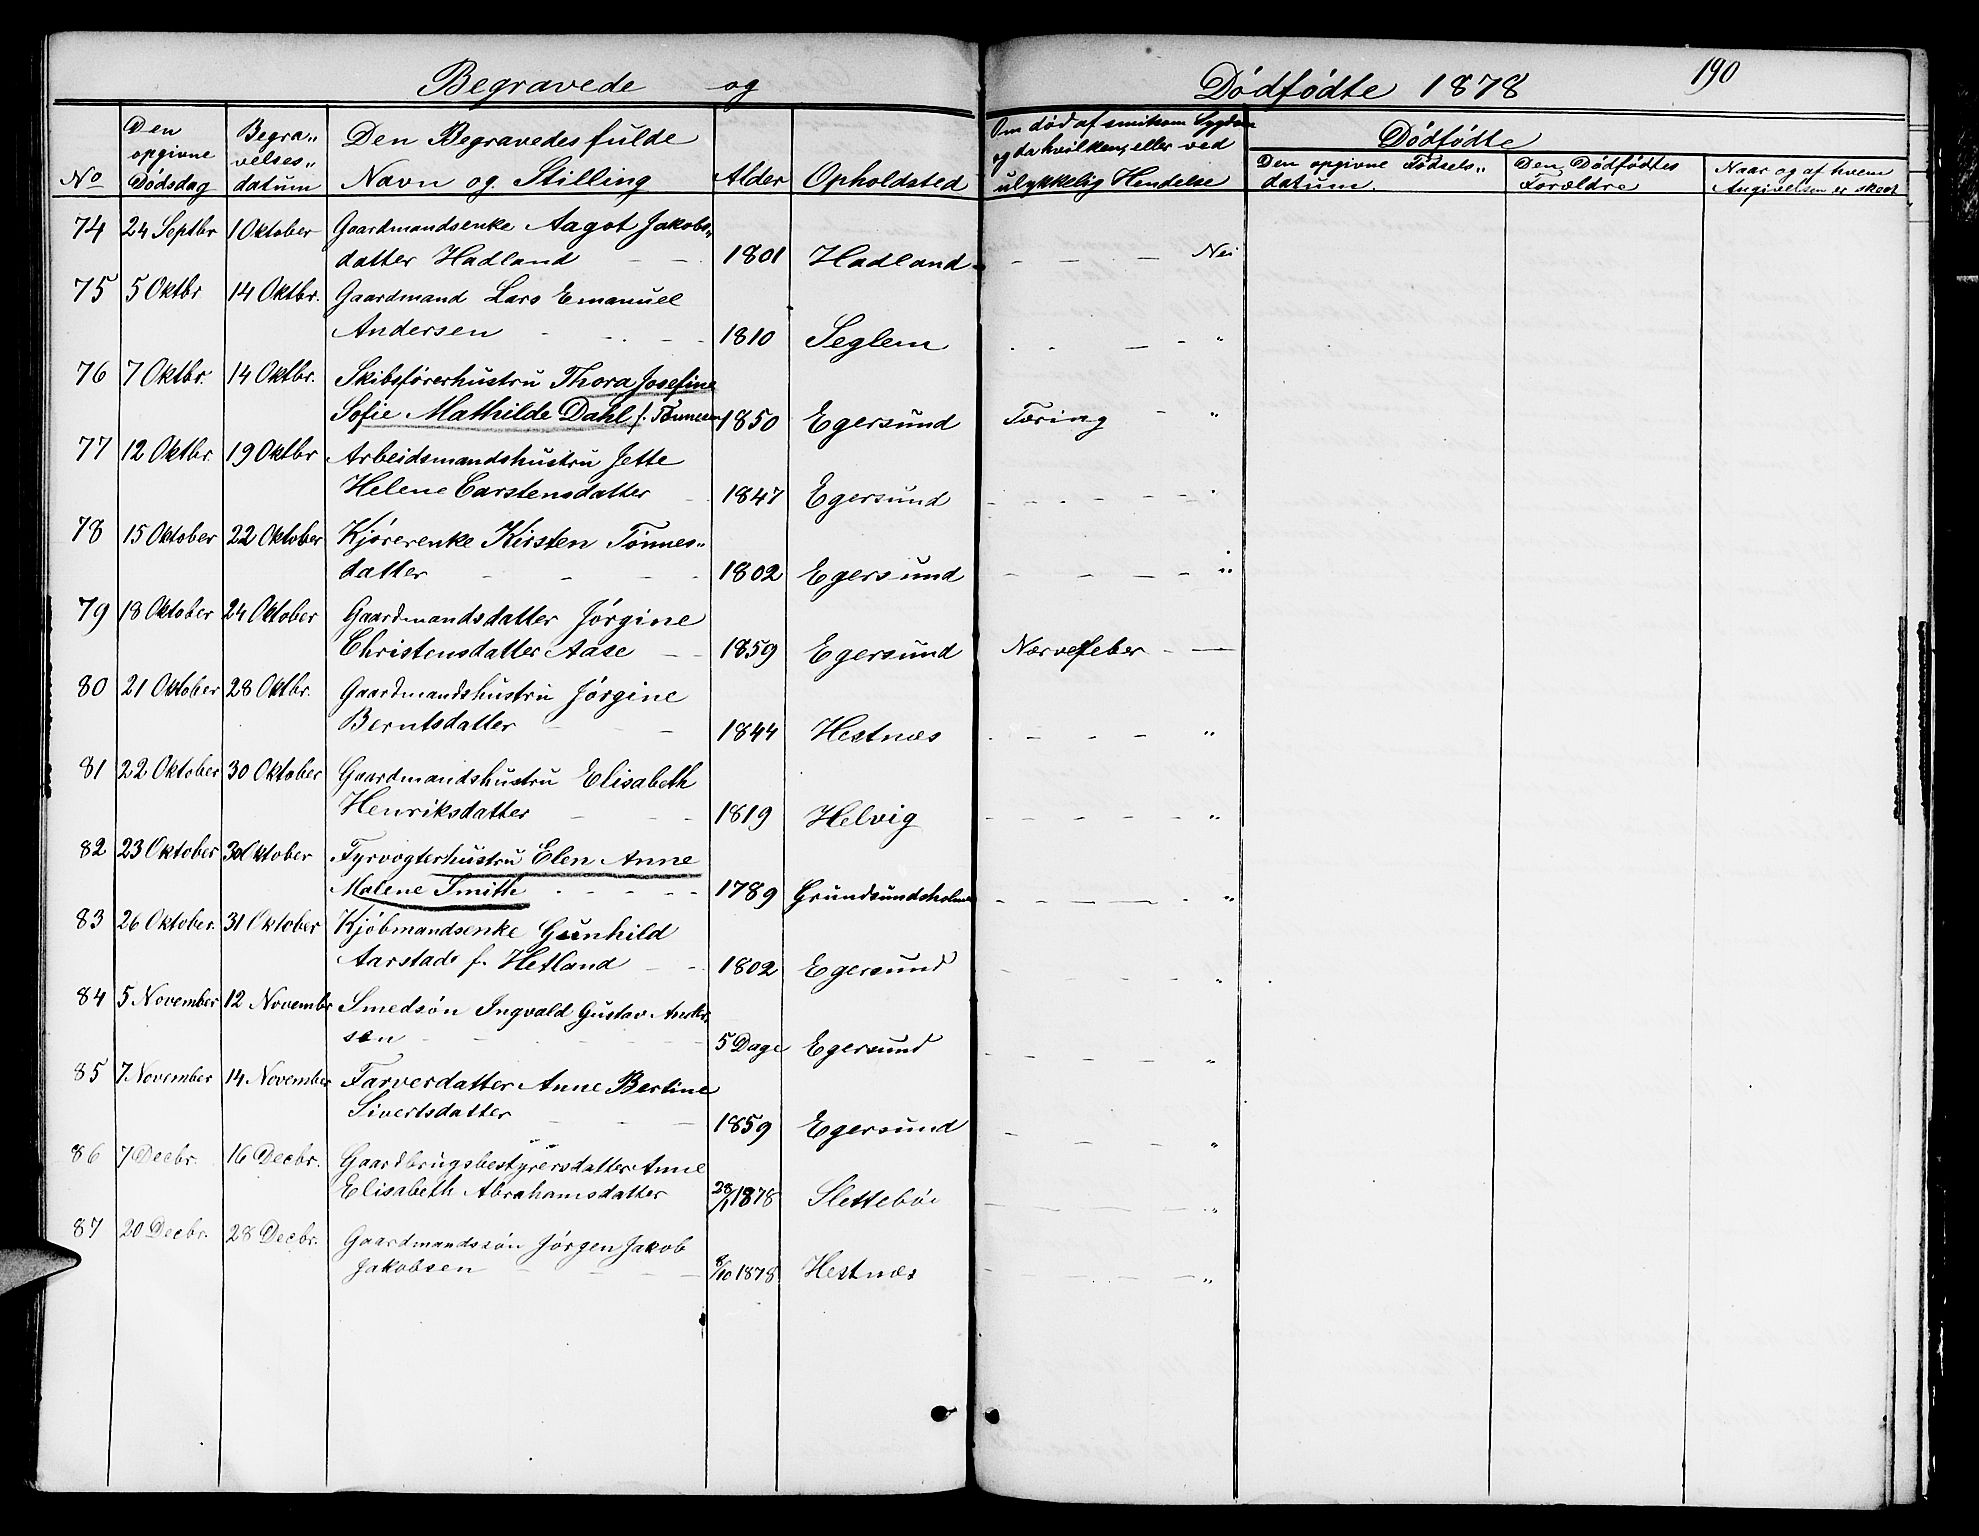 Begravede og Dödfödte 1878 190
No
Den opgivne Dödsdag
Begra„ velses„ datum
Den Begravedes fulde Navn og Stilling
Alder
Opholdsted
Om död af smitsom Sygdom og da hvilken, eller ved ulykkelig Hendelse
Dödfödte
Den opgivne Födsels„ datum.
Den Dödfödtes Forældre
Naar og af hvem Angivelsen er skeet
74 24 Septbr 1 Oktober Gaardmandsenke Aagot Jakobs„
datter Hadland 1801 Hadland Nei
75 5 Oktbr 14 Oktbr. Gaardmand Lars Emanuel
Andersen 1810 Seglem „
76 7 Oktbr. 14 Oktbr. Skibsförerhustru Thora Josefine
Sofie Mathilde Dahl f. Tönnesen 1850 Egersund Tæring „
77 12 Oktbr. 19 Oktbr Arbeidsmandshustru Jette
Helene Carstensdatter 1847 Egersund „
78 15 Oktober 22 Oktober Kjörerenke Kirsten Tönnes„
datter 1802 Egersund „
79 18 Oktober 24 Oktober Gaardmandsdatter Jörgine
Christensdatter Aase 1859 Egersund Nervefeber
80 21 Oktober 28 Oktbr. Gaardmandshustru Jörgine
Berntsdatter 1844 Hestnæs „
81 22 Oktober 30 Oktober Gaardmandshustru Elisabeth
Henriksdatter 1819 Helvig „
82 23 Oktober 30 Oktober Fyrvogterhustru Elen Anne
Malene Smith 1789 Grundsundsholmen „
83 26 Oktober. 31 Oktober Kjöbmandsenke Gunhild
Aarstad f. Hetland 1802 Egersund „
84 5 November 12 November Smedsön Ingvald Gustav Ander„
sen 5 Dage Egersund „
85 7 November 14 November Farverdatter Anne Bertine
Sivertsdatter 1859 Egersund „
86 7 Decbr. 16 Decbr. Gaardbrugsbestyrersdatter Anne
Elisabeth Abrahamsdatter 28/1 1878 Slettebö „
87 20 Decbr. 28 Decbr. Gaardmandssön Jörgen Jakob
Jakobsen 8/10 1878 Hestnæs „